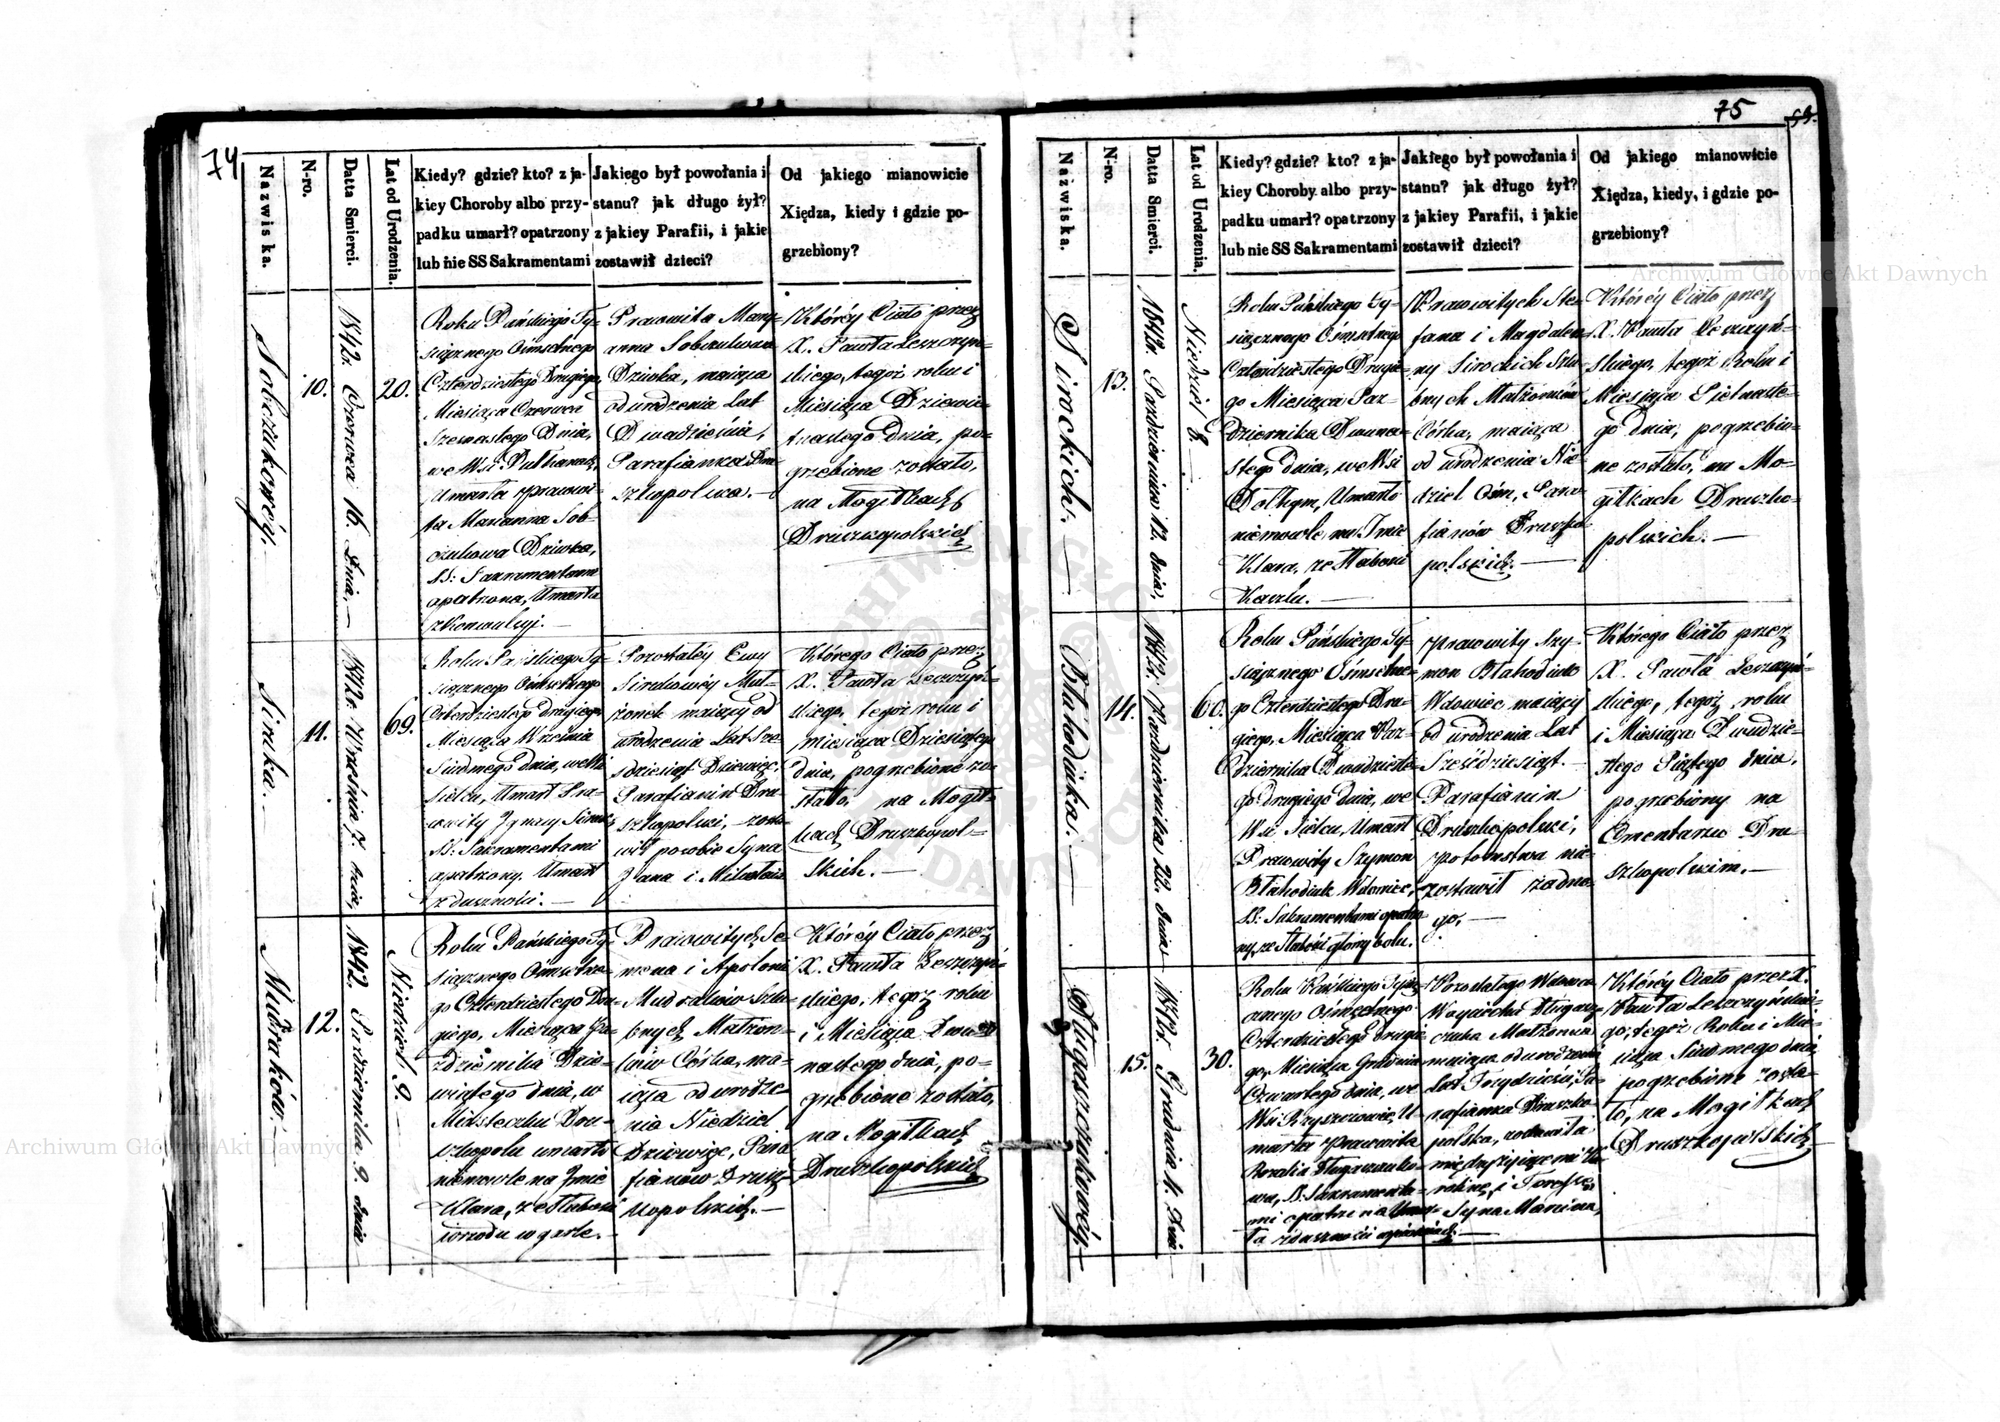 74
Nazwiska.
N-ro.
Datta Smierci.
Lat od Urodzenia.
Kiedy? gdzie? kto? z ja-
kiey Choroby albo przy-
padku umarł? opatrzony
lub nie SS Sakramentami
Jakiego był powołania i
stanu? jak długo żył?
z jakiey Parafii, i jakie
zostawił dzieci?
Od jakiego mianowicie
Xiędza, kiedy i gdzie po-
grzebiony?
10.
1842r. Czerwca 16. Dnia.
20.
Roku Pańskiego Ty-
siącznego Ośmsetnego
Czterdziestego Drugiego,
Miesiąca Czerwca
Szesnastego Dnia,
we Wsi
Umarła prawowi-
ta Marianna Sob-
czukowa Dziwka,
SS: Sakramentami
opatrzona, Umarła
z Konwulsyi.
Prawowita Mary-
anna
Dziwka, maiąca
od urodzenia Lat
Dwadzieścia,
Parafianka Dru-
szkopolska.
Któréy Ciało przez
X. Pawła Leszczyń-
skiego, tegoż roku i
Miesiąca Dziewię-
tnastego dnia, po-
grzebione zostało,
na Mogiłkach
Druszkopolskich
Siruka.
11.
1842r. Września 7. dnia,
69.
Roku Pańskiego Ty-
siącznego Ośmsetnego
Czterdziestego drugiego
Miesiąca Września
Siudmego dnia, we Wsi
Sielcu, Umarł Pra-
wowity Ignacy Siruk,
SS: Sakramentami
opatrzony, Umarł
z duszności.
Pozostałéy Ewy
Sirukowéy Mał-
żonek maiący od
urodzenia Lat Sze-
śdziesiąt Dziewięć,
Parafianin Dru-
szkopolski, zosta-
wił po sobie Syna
Jana i
Którego Ciało przez
X. Pawła Leszczyń-
skiego, tegoż roku i
miesiąca Dziesiątego
dnia, pogrzebione zo-
stało, na Mogił-
kach Druszkopol-
skich.
Mudraków.
12.
1842. Pazdziernika 9. dnia
Niedziel 9.
Roku Pańskiego Ty-
siącznego Ośmsetne-
go Czterdziestego Dru-
giego, Miesiąca Pa-
ździernika Dzie-
wiątego dnia, w
Miasteczku Dru-
szkopolu umarło
niemowle na Imie
Klara, ze słabości
wrzodu w garle.
Prawowitych Se-
mena i Apolonii
Mudraków Szlu-
bnych Małżon-
ków Córka, ma-
iąca od urodze-
nia Niedziel
Dziewięć, Para-
fianów Drusz-
kopolskich.
Któréy Ciało przez
X. Pawła Leszczyń-
skiego, tegoż roku
i Miesiąca Dwu-
nastego dnia, po-
grzebione zostało,
na Mogiłkach
Druszkopolskich
75
Nazwiska.
N-ro.
Datta Smierci.
Lat od Urodzenia.
Kiedy? gdzie? kto? z ja-
kiey Choroby albo przy-
padku umarł? opatrzony
lub nie SS Sakramentami
Jakiego był powołania i
stanu? jak długo żył?
z jakiey Parafii, i jakie
zostawił dzieci?
Od jakiego mianowicie
Xiędza, kiedy, i gdzie po-
grzebiony?
Sirockich.
13.
1842r. Pazdziernika 12. dnia,
Niedziel 8.
Roku Pańskiego Ty-
siącznego Ośmsetnego
Czterdziestego Drugie-
go Miesiąca Paz-
dziernika Dwuna-
stego dnia, we Wsi
Umarło
niemowle na Imie
Klara, ze słabości
Kaszlu.
Prawowitych Ste-
fana i Magdale-
ny Sirockich Szlu-
bnych Małżonków
Córka, maiąca
od urodzenia Nie-
dziel Ośm, Para-
fianów Druszko-
polskich.
Któréy Ciało przez
X. Pawła Leszczyń-
skiego, tegoż Roku i
Miesiąca Pietnaste-
go dnia, pogrzebio-
ne zostało, na Mo-
giłkach Druszko-
polskich.
Błahodiuka.
14.
1842r. Pazdziernika 22. dnia
60.
Roku Pańskiego Ty-
siącznego Ośmsetne-
go Czterdziestego Dru-
giego, Miesiąca Paz-
dziernika Dwudzieste-
go drugiego dnia, we
Wsi Sielcu, Umarł
Prawowity Szymon
Błahodiuk Wdowiec,
SS: Sakramentami opatrzo-
ny, ze słabości głowy bolu.
Prawowity Szy-
mon Błahodiuk
Wdowiec maiący
od urodzenia Lat
Sześdziesiąt.
Parafianin
Druszkopolski,
potomstwa nie
zostawił żadne-
go.
Którego Ciało przez
X. Pawła Leszczyń-
skiego, tegoż roku
i Miesiąca Dwudzie-
stego Piątego dnia,
pogrzebiony na
Cmentarzu Dru-
szkopolskim.
Długaszczukowéy.
15.
1842r. Grudnia 4. Dnia
30.
Roku Pańskiego Tysią-
cznego Ośmsetnego
Czterdziestego drugie-
go, Miesiąca Grudnia
Czwartego dnia, we
Wsi U-
marła prawowita
Rozalia Długaszczuko-
wa, SS: Sakramenta-
mi opatrzona Umar-
ła z duszności
Pozostałego Wdowca
Woyciecha Długasz-
czuka Małżonka
maiąca od urodzenia
Lat Trzydzieści, Pa-
rafianka Druszko-
polska, zostawiła
Syna Marcina.
Któréy Ciało przez X.
Pawła Leszczyńskie-
go, tegoż Roku i Mie-
siąca Siudmego dnia,
pogrzebione zosta-
ło, na Mogiłkach
Druszkopolskich
Archiwum Główne Akt Dawnych
Archiwum Główne Akt Dawnych